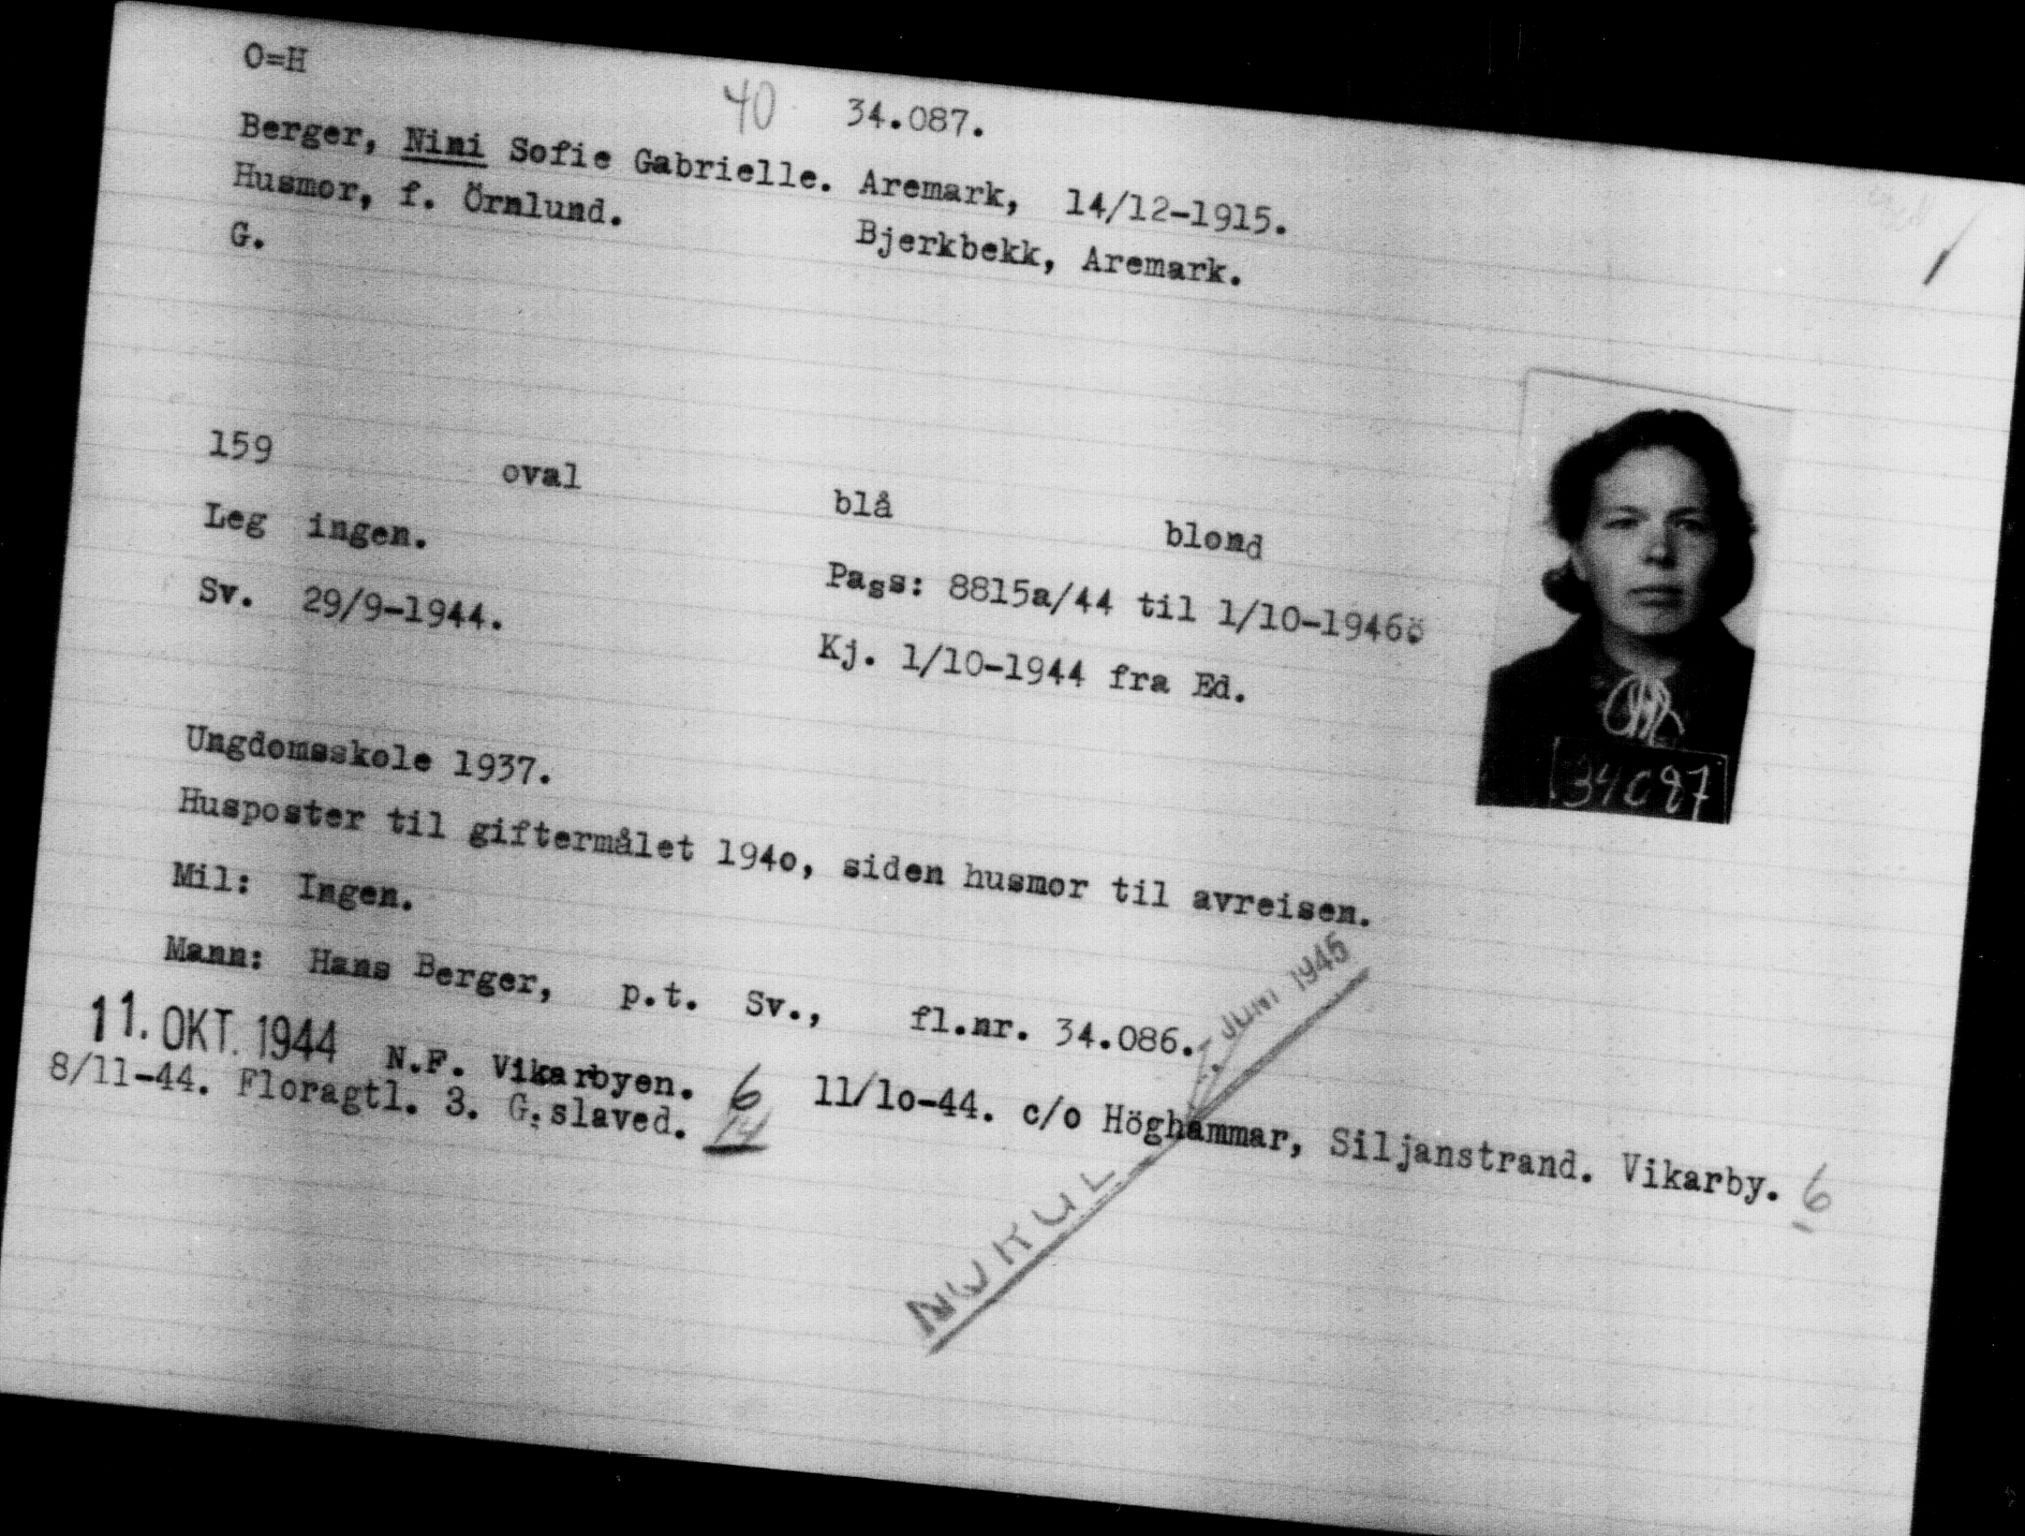 O=H
40 34.087.
Berger, Nini Sofie Gabrielle. Aremark, 14/12-1915.
Husmor, f. Örnlund. Bjerkbekk, Aremark.
G.
159 oval blå blond
Leg ingen. Pass: 8815a/44 til 1/10-1946ö
Sv. 29/9-1944. Kj. 1/10-1944 fra Ed.
34087
Ungdomsskole 1937.
Husposter til giftermålet 194o, siden husmor til avreisen.
Mil: Ingen.
Mann: Hans Berger, p.t. Sv., fl.nr. 34.086.
JUNI 1945
11. OKT. 1944 N.F. Vikarbyen. 6 11/1o-44. c/o Höghammar, Siljanstrand. Vikarby. 6
8/11-44. Floragtl. 3. G.slaved. 14